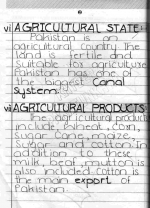 vi AGRICULTURAL STATE:-
Pakistan is an
agricultural country the
land is fertile and
suitable for agriculture
Pakistan has one of
the biggest Canal
System.
vii AGRICULTURAL PRODUCTS
The agricultural product
include, Wheat, Corn,
Sugar Cane, maize,
Sugar and cotton. In
addition to these
milk, beaf, mutton is
also included cotton is
the main export of
Pakistan